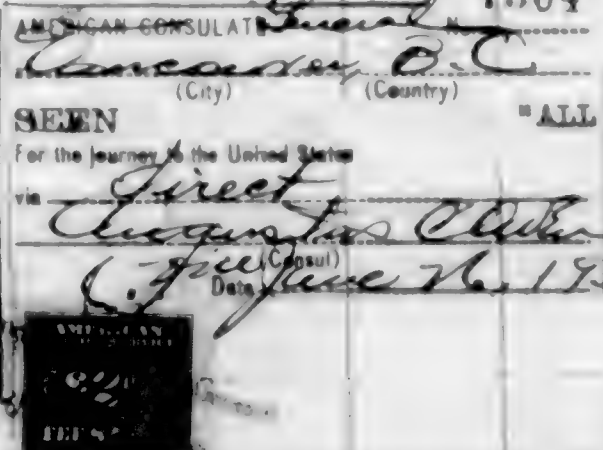 AMERICAN CONSULATE General N
Vancouver, B.C.
(City) (Country)
SEEN "ALL
For the journey to the United States
via Direct
Augustus
(Consul)
Date June 26, 19
AMERICAN